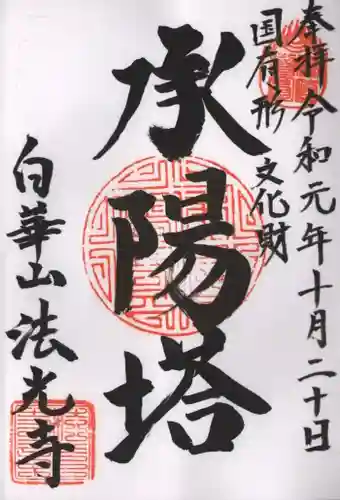 奉拝 令和元年十月二十日
国有形文化財
承陽塔
白華山法光寺